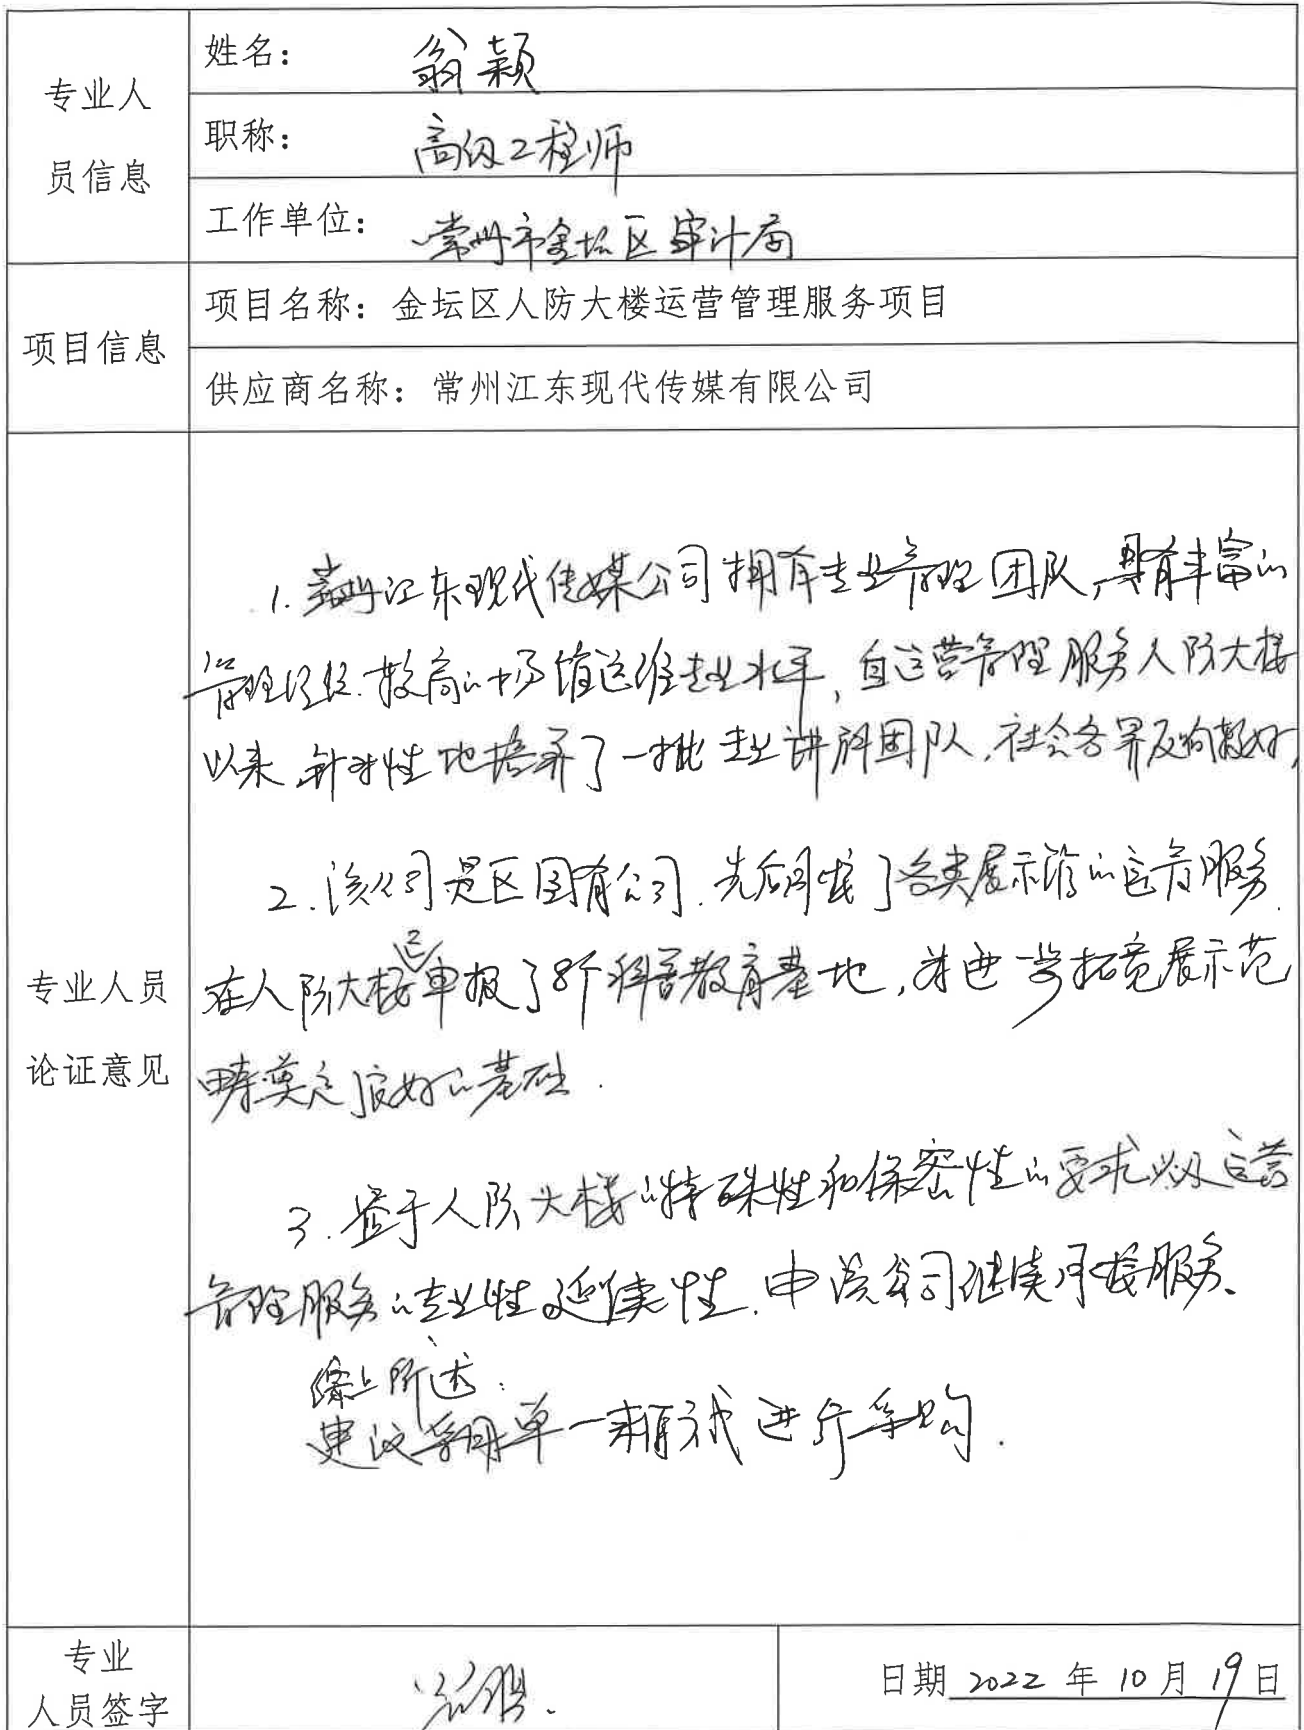 专业人
员信息
姓名： 翁颖
职称： 高级工程师
工作单位： 常州市金坛区审计局
项目信息
项目名称：金坛区人防大楼运营管理服务项目
供应商名称：常州江东现代传媒有限公司
专业人员
论证意见
1. 常州江东现代传媒公司拥有专业管理团队，具有丰富的
管理经验.较高的场馆运维专业水平，自运营管理服务人防大楼
以来，针对性地培养了一批专业讲解团队，社会各界反响较好，
2. 该公司是区国有公司.先后承接了各类展示馆的运营服务.
在人防大楼已申报了8个科普教育基地，为进一步拓宽展示范
畴奠定了良好的基础.
3. 鉴于人防大楼的特殊性和保密性的要求以及运营
管理服务的专业性延续性.由该公司继续承接服务。
综上所述：
建议采用单一来源方式进行采购.
专业
人员签字
日期 2022 年 10 月 19 日